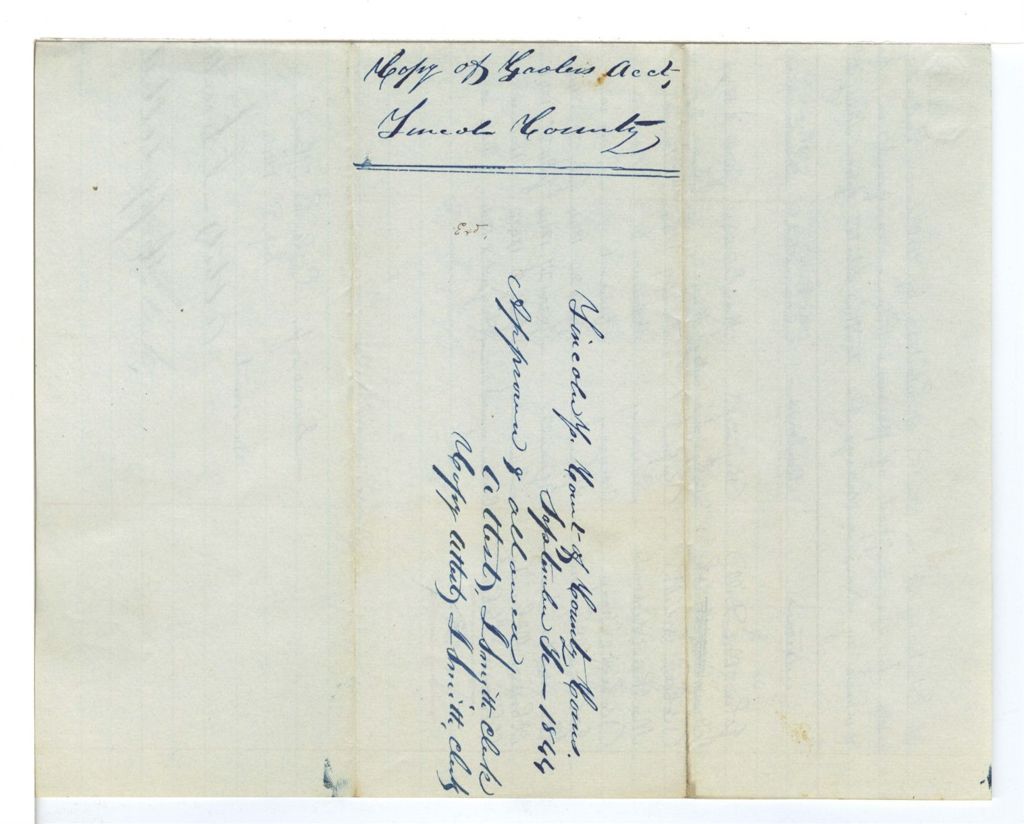 Copy of Gaolers Acct,
Lincoln County
Lincoln ss. Court of County Coms.
September Te 1844
Approved & allowed
Attest, S Smith Clerk
Copy Attest, S Smith, Clerk